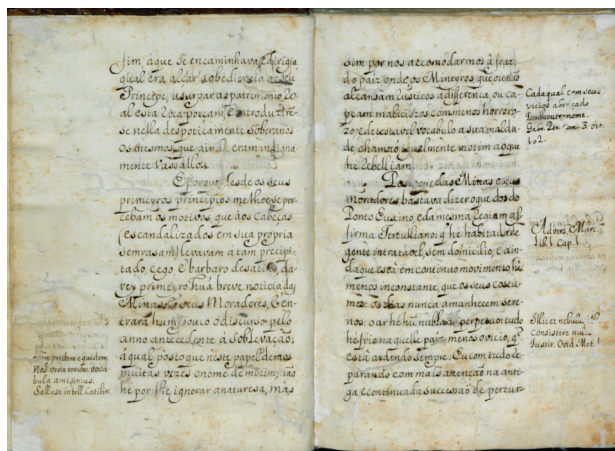 fim, aque se encaminhava, e dirigia
qual era alçar s obediencia ao seu
Principe, usurpar as patrim.nio Re-
al esta Vica porçam, e introduzirẽ-
se nella despoticamente soberanos
os mesmos que ainda eram indigna-
mente Vassallos.
E porque desde os seus
primeyros principios melhor se per-
cebam os motivos, que aos Cabeças
(escandalizados em sua propria
semrasam) levaram a tam precipi-
tado, cego e barbaro desatino, da-
rey primeyro hũa breve noticia das
Minas, e seus Moradores, E en-
trarà hum pouco o discurso, pelo
anno antecedente à Soblevação;
à qual posto que neste papel demos
muitas vezes o nome de motim; não
he por lhe ignorar a naturesa, mas
equidem
Nos vera rerum voca-
bula amisimus.
Sallust. in bell. Catilin.
sim por nos acomodarmos à fraze
do paiz onde os Mineyros, que ou não
alcansam rusticos a diferença ou ca-
peam maliciozos com menos horroro-
zo, e detestavel vocabulo a sua malda-
de chamão igualmente motim ao que
he Rebelliam.
Das Minas e seus
moradores bastava dizer o que dos do
Ponto Euxino, e da mesma Regiam af-
firma Tertulliano; q̃ he habitada de
gente intratavel, sem domicilio, e ain-
da que está em continuo movimento, he
menos inconstante, que os seos costu-
mes: os dias nunca amanhecem sere-
nos: o ar he hũ nublado perpetuo: tudo
he frio naquelle paiz, menos o vicio, q̃
está ardendo sempre. Eu com tudo re-
parando com mais attenção na anti-
ga e continuada successão de pertur-
Cada qual com seus
vicios abraçado
nome.
3. oit.
102.
Advers. Marc.
lib. 1. Cap. 1.
Illic et nebulas
Consistere nubes
Iussit. Ovid. Met. 1